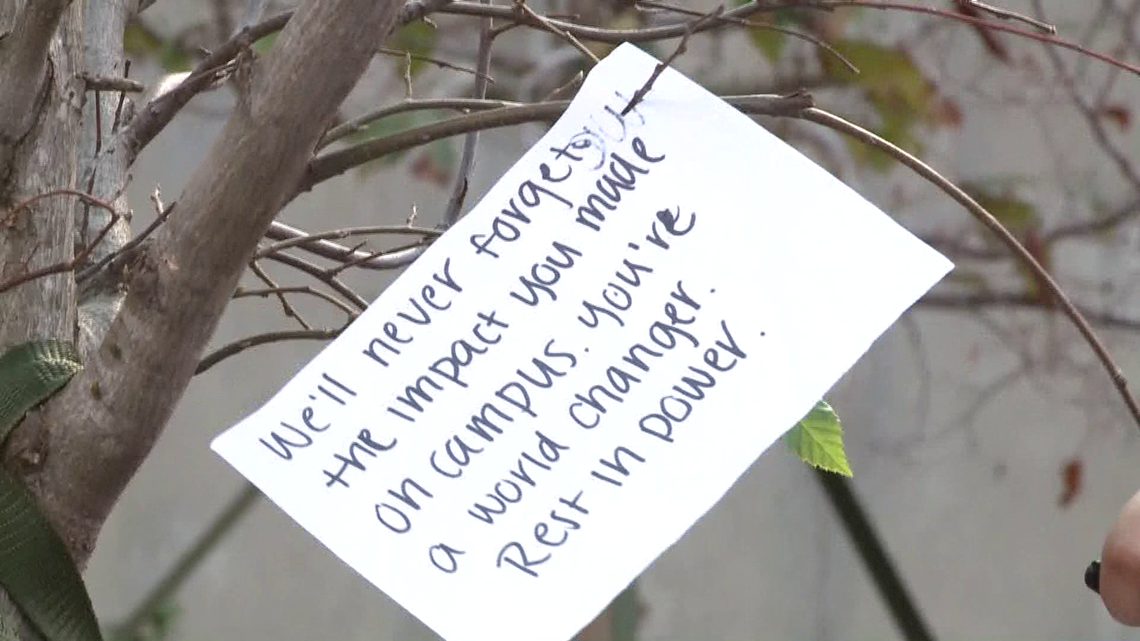 We'll never forget you
the impact you made
on campus. You're
a world changer.
Rest in power.